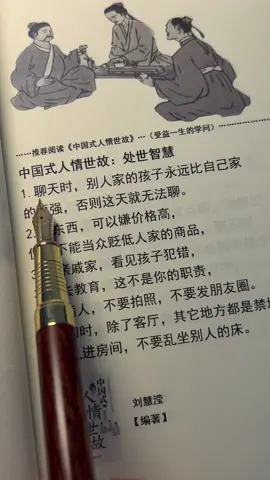 ……推荐阅读《中国式人情世故》…（受益一生的学问）……
中国式人情世故：处世智慧
1. 聊天时，别人家的孩子永远比自己家
的 强，否则这天就无法聊。
2. 东西，可以嫌价格高，
不能当众贬低人家的商品，
亲戚家，看见孩子犯错，
教育，这不是你的职责，
人，不要拍照，不要发朋友圈。
时，除了客厅，其它地方都是禁地
进房间，不要乱坐别人的床。
中国式
人情世故
刘慧滢
【编著】